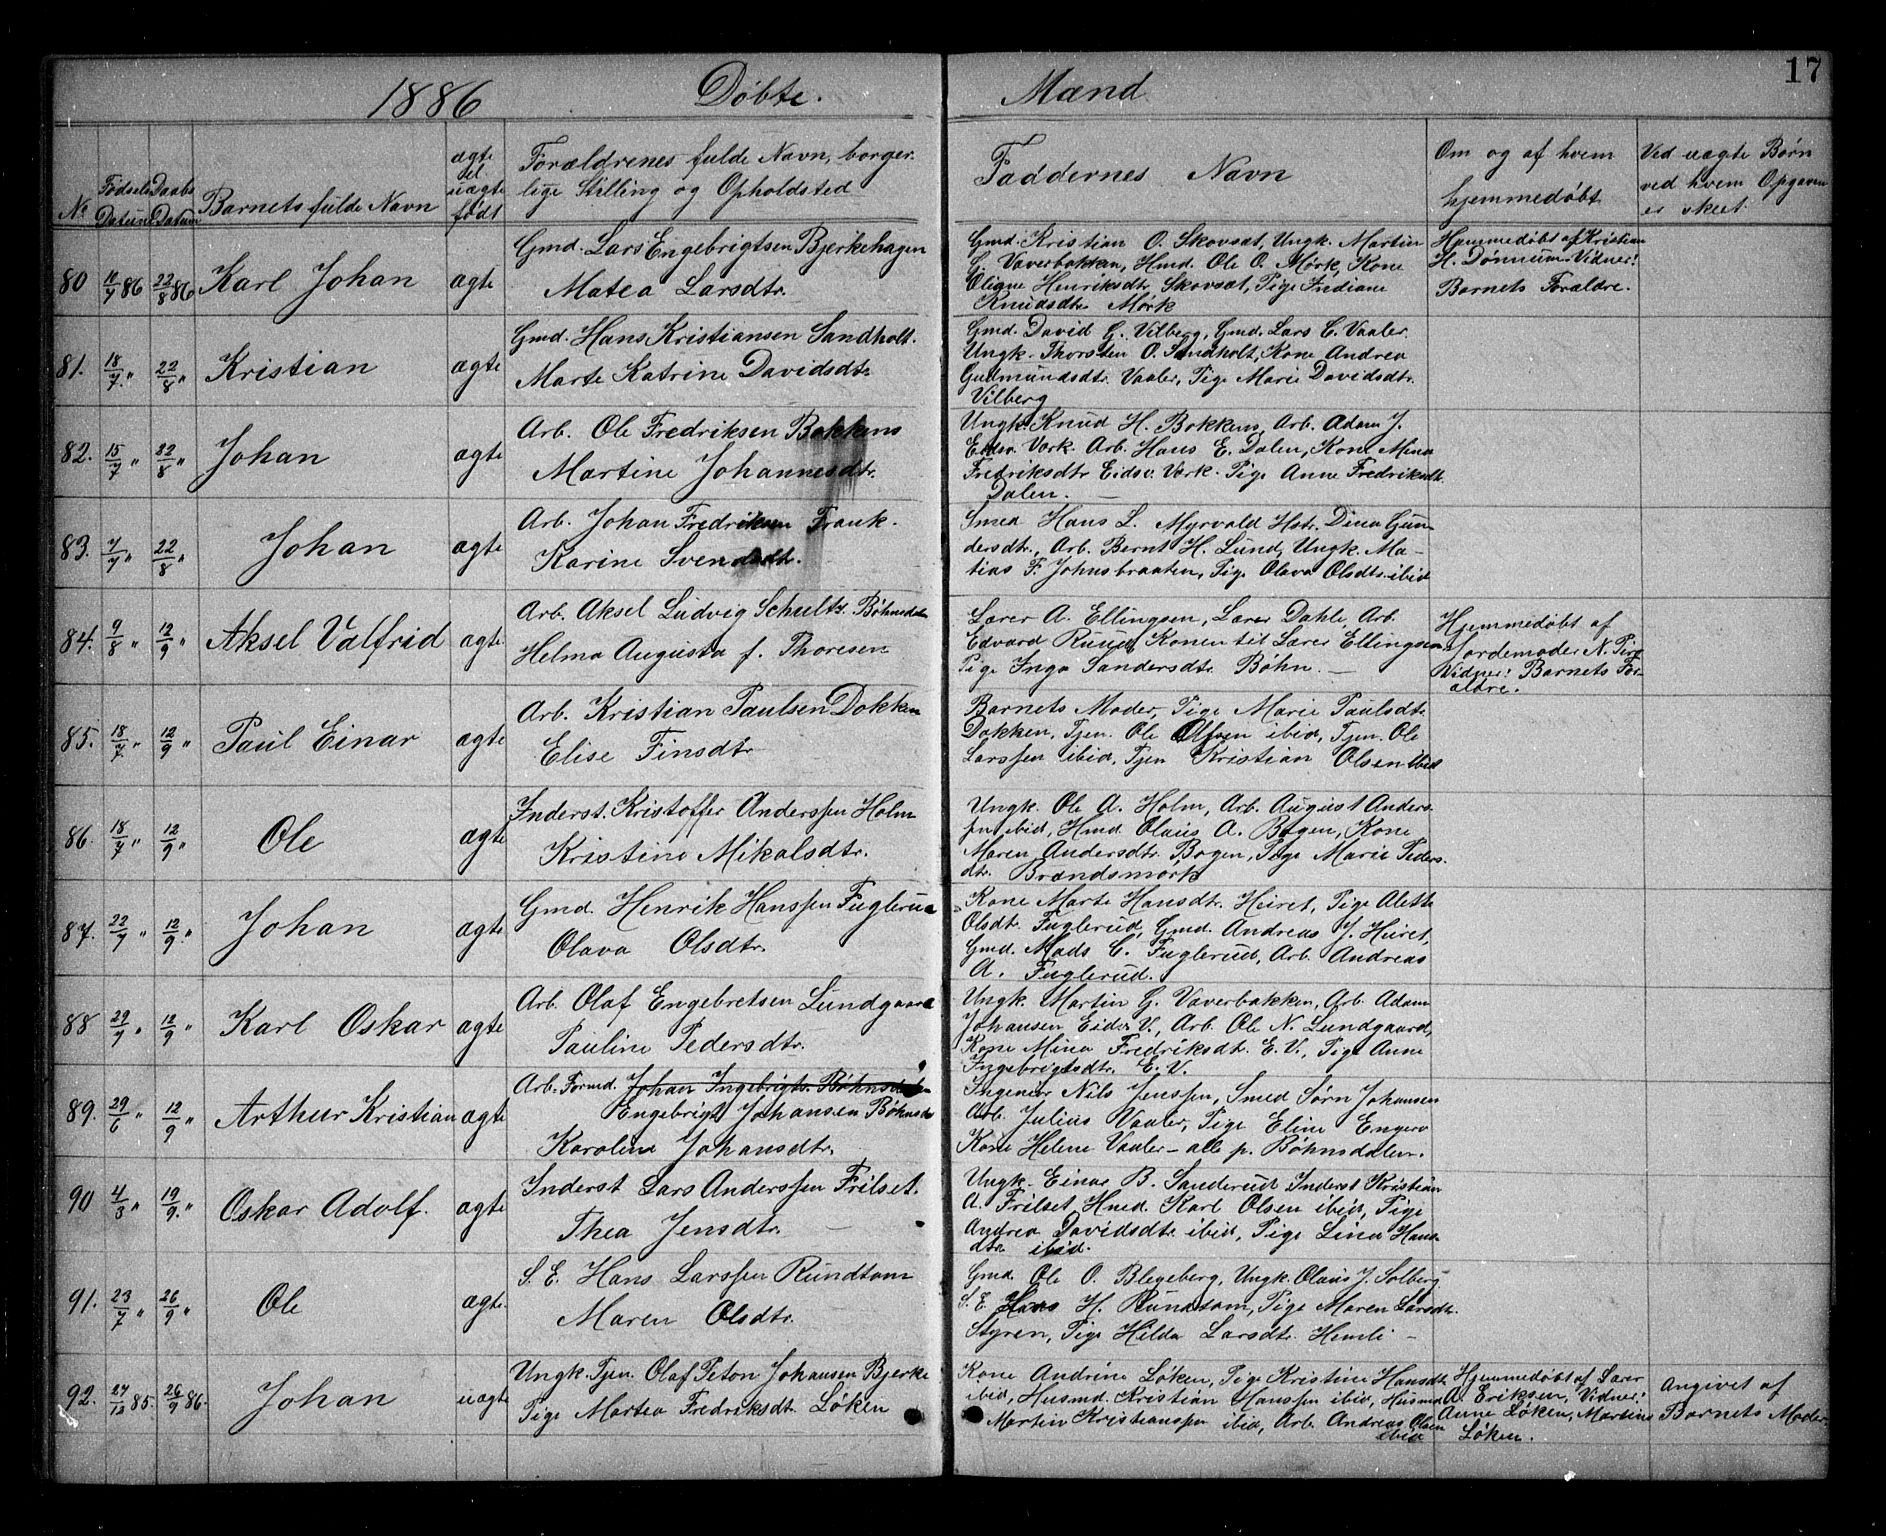 1886 Döbte. Mænd 17
No Fødsels Datum Daabs Datum Barnets fulde Navn ægte el uægte født Forældrenes fulde Navn, borgerlige Stilling og Opholdsted
Faddernes Navn
Om og af hvem hjemmedøbt
Ved uægte Børn ved hvem Opgaven er skeet.
80 10/7 86 22/8 86 Karl Johan ægte
Gmd. Lars Engebrigtsen Bjerkehagen
Matea Larsdtr.
Gmd. Kristian O. Skovsæt, Ungk. Martin
G. Vaverbakken, Hmd. Ole O. Mørk, Kone
Oligne Henriksdtr Skovsæt, Pige Indiane
Knudsdtr Mørk
Hjemmedøbt af Kristian
H. Dønnum. Vidner:
Barnets Forældre.
81. 18/7 " 22/8 " Kristian ægte
Gmd. Hans Kristiansen Sandholt.
Marte Katrine Davidsdtr
Gmd. David G. Vilberg, Gmd. Lars C. Vaaler.
Ungk. Thorsten O. Sandholt, Kone Andrea
Gudmundsdtr. Vaaler, Pige Marie Davidsdtr.
Vilberg
82. 15/7 " 22/8 " Johan ægte
Arb. Ole Fredriksen Bakkens
Martine Johannesdtr.
Ungk. Knud H. Bakkens, Arb. Adam J.
Eidsv. Værk. Arb. Hans E. Dalen, Kone Mina
Fredriksdtr Eidsv. Værk. Pige Anne Fredriksdtr.
Dalen. —
83. 7/7 " 22/8 " Johan ægte
Arb. Johan Fredriksen Frank.
Karine Svendsdtr.
Smed Hans L. Myrvold Hstr. Dina Gun
dersdtr., Arb. Bernt H. Lund, Ungk. Ma-
tias F. Johnsbraaten, Pige Olava Olsdtr. ibid
84. 9/8 " 12/9 " Aksel Valfrid ægte
Arb. Aksel Ludvig Schultz. Bøhnsdalen
Helma Augusta f. Thoresen
Lærer A. Ellingsen, Lærer Dahle, Arb.
Edvard Ruud, Konen til Lærer Ellingsen
Pige Inga Sandersdtr. Bøhn. —
Hjemmedøbt af
Jordemoder N.
Vidner: Barnets For-
ældre.
85. 18/7 " 12/9 " Paul Einar ægte
Arb. Kristian Paulsen Dokken
Elise Finsdtr
Barnets Moder, Pige Marie Paulsdtr.
Dokken, Tjen. Ole Olsen ibid, Tjen. Ole
Larssen ibid, Tjen Kristian Olsen ibid
86. 18/7 " 12/9 " Ole ægte
Inderst. Kristoffer Anderssen Holm
Kristine Mikalsdtr.
Ungk. Ole A. Holm, Arb. August Anders
sen ibid, Hmd. Olaus A. Bogen, Kone
Maren Andersdtr. Bogen, Pige Marie Peders
dtr. Brandsmørk
87. 22/7 " 12/9 " Johan ægte
Gmd. Henrik Hanssen Fuglerud
Olava Olsdtr.
Kone Marte Hansdtr. Heiret, Pige Alette
Olsdtr. Fuglerud, Gmd. Andreas J. Heiret,
Gmd. Mads C. Fuglerud, Arb. Andreas
A. Fuglerud.
88 29/7 " 12/9 " Karl Oskar ægte
Arb. Olaf Engebretsen Lundgaard
Pauline Pedersdtr.
Ungk. Martin G. Vaverbakken, Arb. Adam
Johansen Eidsv. V., Arb. Ole N. Lundgaard,
Kone Mina Fredriksdtr. E. V., Pige Anne
Ingebrigtsdtr. E. V.
89. 29/6 " 12/9 " Arthur Kristian ægte
Arb. Formd. Johan Ingebrigts. Bøhnsdalen
Engebrigt Johansen Bøhnsd
Karoline Johansdtr.
Ingeniør Nils Jenssen, Smed Sørn Johansen
Arb. Julius Vaaler, Pige Eline Engera
Kone Helene Vaaler – alle p. Bøhnsdalen.
90 4/3 " 19/9 " Oskar Adolf. ægte
Inderst Lars Anderssen Frilset.
Thea Jensdtr. —
Ungk. Einar B. Sanderud Inderst Kristian
A. Frilset Hmd. Karl Olsen ibid, Pige
Andrea Davidsdtr ibid, Pige Lina Hans
dtr ibid.
91. 23/7 " 26/9 " Ole ægte.
S. E. Hans Larssen Rundtom
Maren Olsdtr.
Gmd. Ole O. Blegeberg, Ungk. Olaus J. Solberg
S. E. Hans H. Rundtom, Pige Maren Larsdtr.
Styren, Pige Hilda Larsdtr. Hemli –
92. 27/12 85. 26/9 86. Johan uægte
Ungk. Tjen. Olaf Peton Johansen Bjerke
Pige Martea Fredriksdtr. Løken
Kone Andrine Løken, Pige Kristine Hansdtr
ibid, Husmd. Kristian Hanssen ibid, Husmd
Martin Kristianssen ibid, Arb. Andreas Olsen
ibid
Hjemmedøbt af Lærer
A. Eriksen, Vidner:
Anne Løken, Martinus
Løken.
Angivet af
Barnets Moder.